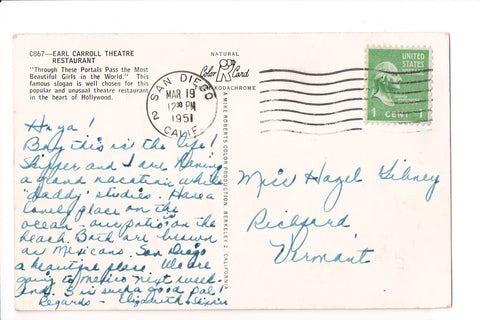 C867—EARL CARROLL THEATRE
RESTAURANT
"Through These Portals Pass the Most
Beautiful Girls in the World." This
famous slogan is well chosen for this
popular and unusual theatre restaurant
in the heart of Hollywood.
NATURAL
Color Card
KODACHROME
SAN DIEGO
2
MAR 19
12 30 PM
1951
CALIF.
UNITED
STATES
POSTAGE
1 CENT 1
A MIKE ROBERTS COLOR PRODUCTION BERKELEY 2, CALIFORNIA
Hi ya!
Boy this is the life!
Skipper and I are having
a grand vacation while
"daddy" studies. Have a
lovely place on the
ocean - our patio on the
beach. Both are brown
as Mexicans. San Diego
a beautiful place. We are
going to Mexico next week-
end. S is such a good pal!
Regards - Elizabeth
Miss Hazel Sibney
Richford,
Vermont